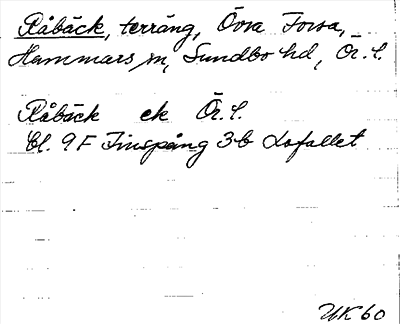 Råbäck, terräng, Övra Forsa,
Hammars sn, Sundbo hd, Ör. l.
Råbäck ek Ör. l.
Bl. 9 F Finspång 3 b Lofallet
UK 60